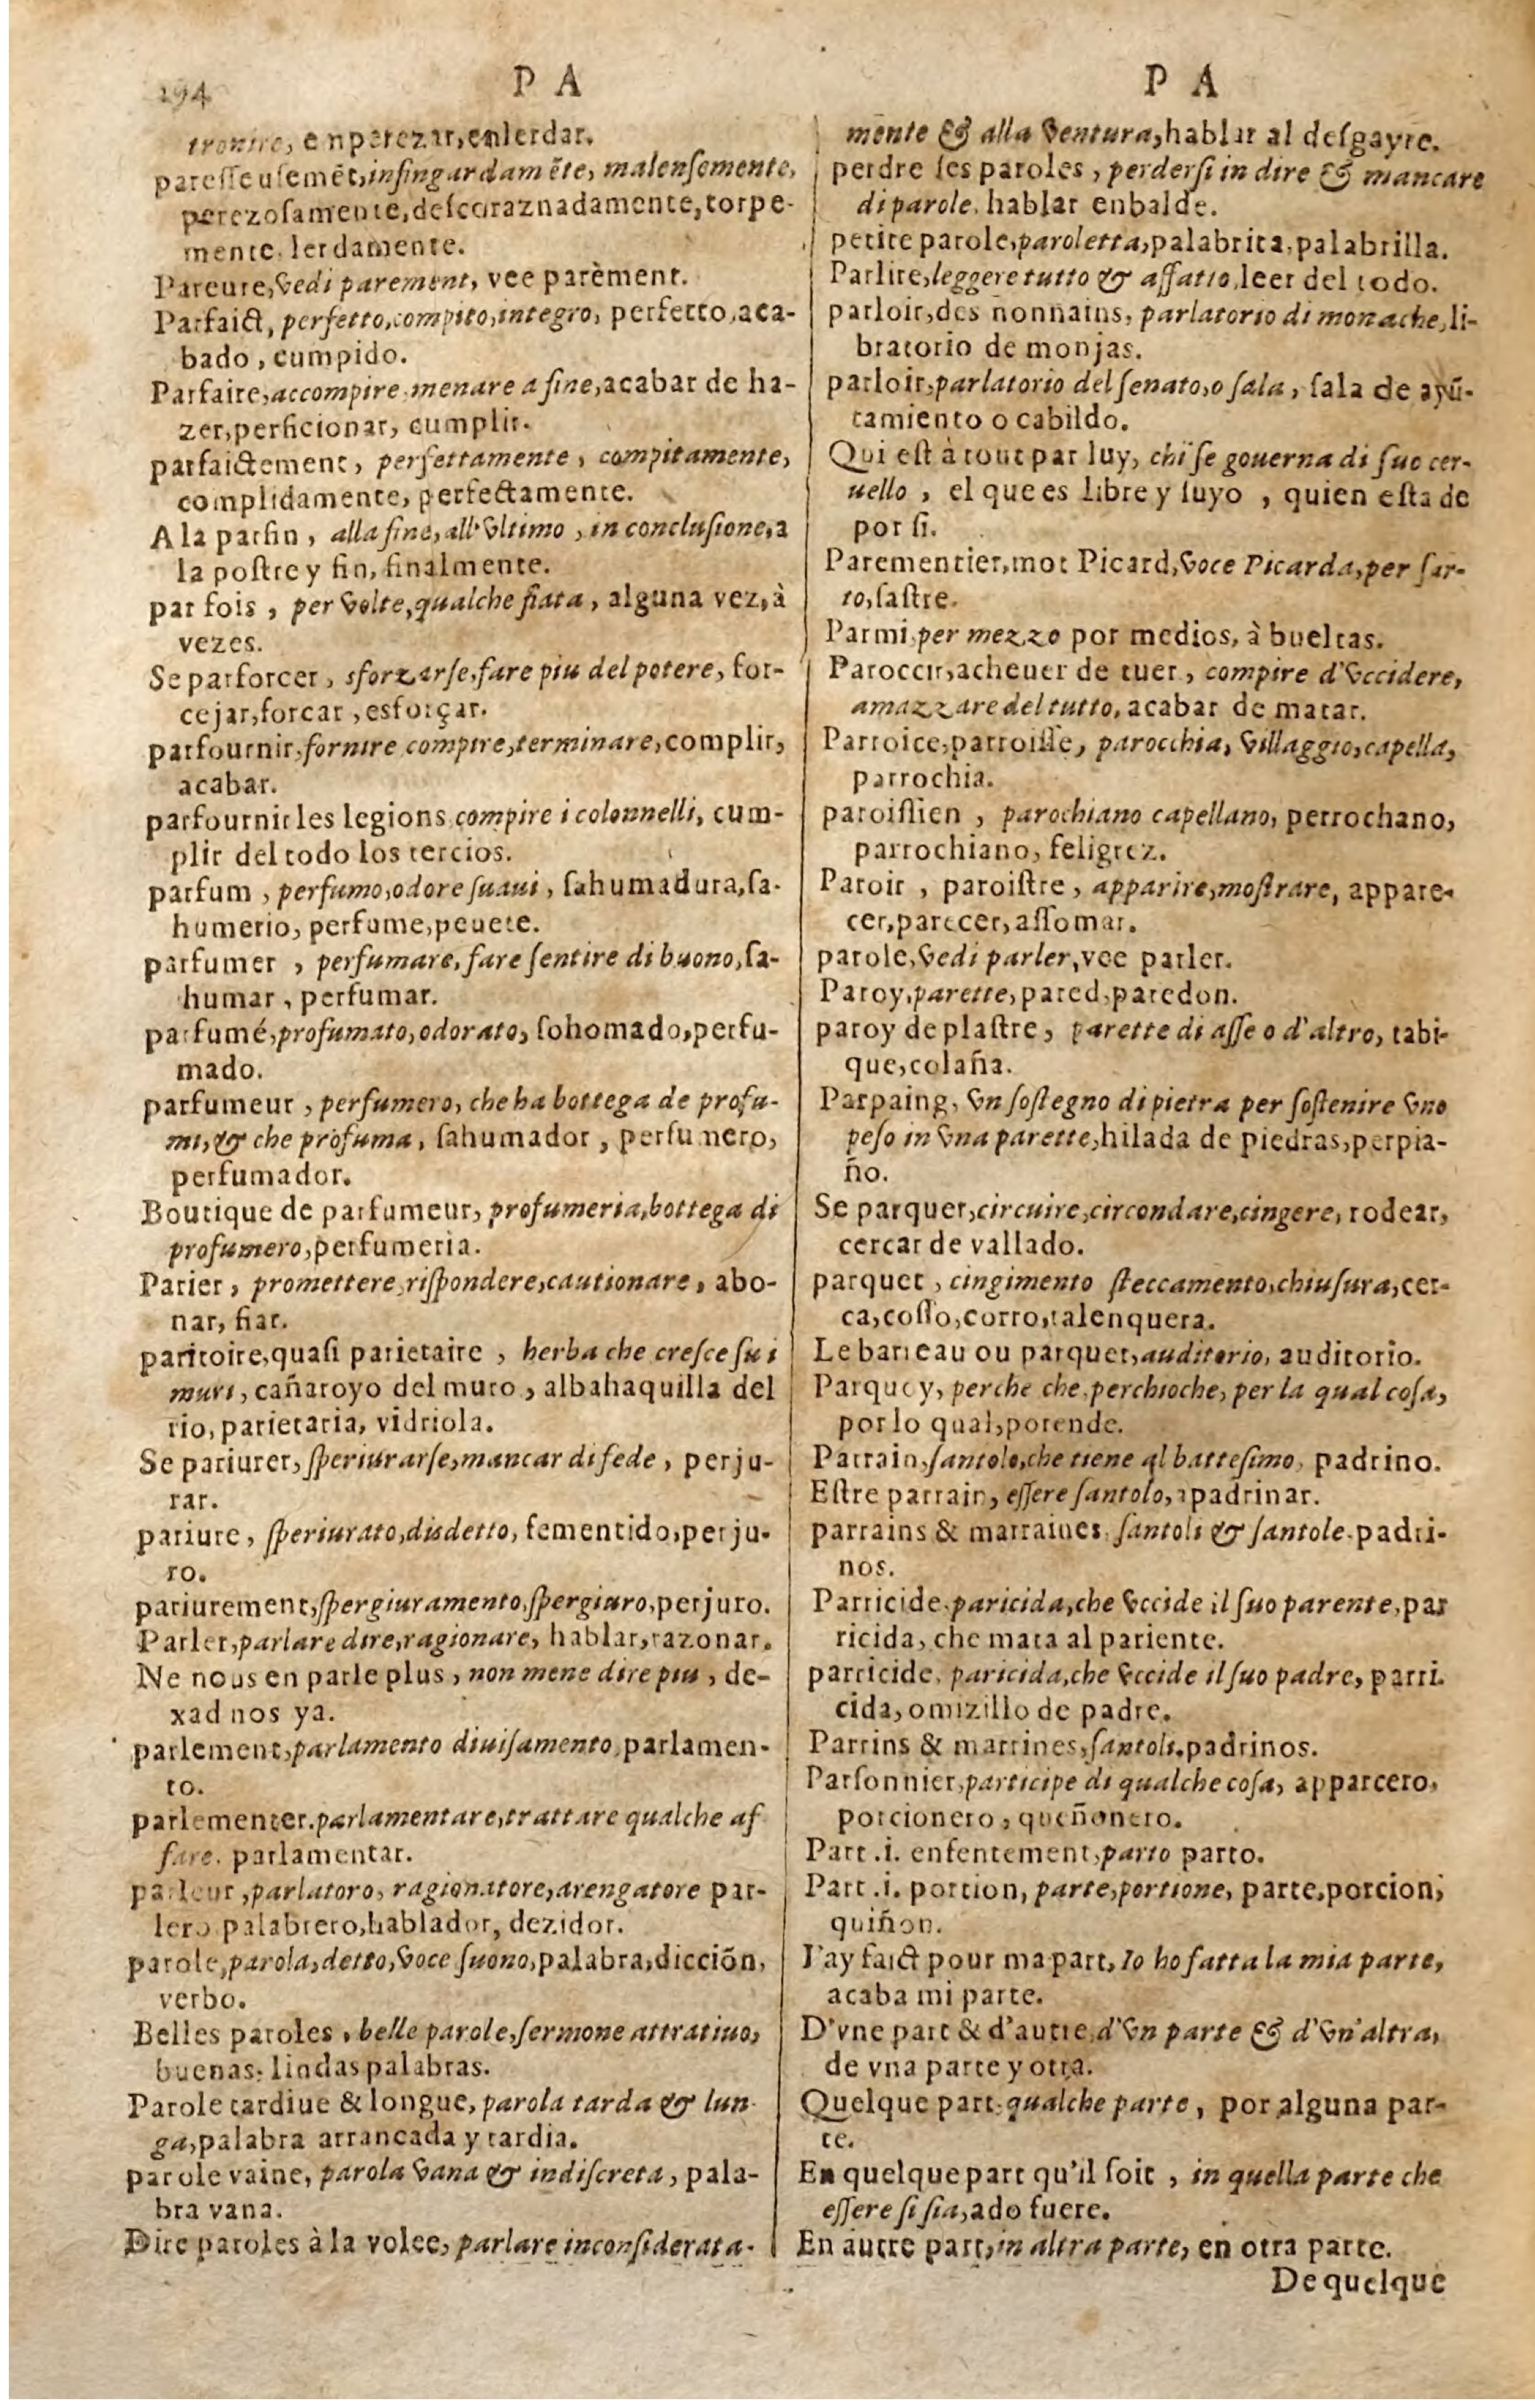 294
P A
tronire, enperezar, enlerdar.
paresseusemẽt, insingardamẽte, malensemente,
perezosamente, descoraznadamente, torpe-
mente, lerdamente.
Pareure, vedi parement, vee parèment.
Parfaict, perfetto, compito, integro, perfecto, aca-
bado, cumpido.
Parfaire, accompire, menare a fine, acabar de ha-
zer, perficionar, cumplir.
parfaictement, perfettamente, compitamente,
complidamente, perfectamente.
A la parfin, alla fine, all'vltimo, in conclusione, a
la postre y fin, finalmente.
par fois, per volte, qualche fiata, alguna vez, à
vezes.
Se parforcer, sforzarse, fare piu del potere, for-
cejar, forcar, esforçar.
parfournir, fornire compire, terminare, complir,
acabar.
parfournir les legions compire i colonnelli, cum-
plir del todo los tercios.
parfum, perfumo, odore suaui, sahumadura, sa-
humerio, perfume, peuete.
parfumer, perfumare, fare sentire di buono, sa-
humar, perfumar.
parfumé, profumato, odorato, sohomado, perfu-
mado.
parfumeur, perfumero, che ha bottega de profu-
mi, & che profuma, sahumador, perfumero,
perfumador.
Boutique de parfumeur, profumeria, bottega di
profumero, perfumeria.
Parier, promettere, rispondere, cautionare, abo-
nar, fiar.
paritoire, quasi parietaire, herba che cresce su i
muri, cañaroyo del muro, albahaquilla del
rio, parietaria, vidriola.
Se pariurer, speriurarse, mancar di fede, perju-
rar.
pariure, speriurato, disdetto, fementido, perju-
ro.
pariurement, spergiuramento, spergiuro, perjuro.
Parler, parlare dire, ragionare, hablar, razonar.
Ne nous en parle plus, non mene dire piu, de-
xad nos ya.
parlement, parlamento diuisamento, parlamen-
to.
parlementer. parlamentare, trattare qualche af
fare. parlamentar.
parleur, parlatoro, ragionatore, arengatore par-
lero palabrero, hablador, dezidor.
parole, parola, detto, voce suono, palabra, dicciõn,
verbo.
Belles paroles, belle parole, sermone attratiuo,
buenas, lindas palabras.
Parole tardiue & longue, parola tarda & lun-
ga, palabra arrancada y tardia.
parole vaine, parola vana & indiscreta, pala-
bra vana.
Dire paroles à la volee, parlare inconsiderata-
P A
mente & alla ventura, hablar al desgayre.
perdre ses paroles, perdersi in dire & mancare
di parole, hablar enbalde.
petite parole, paroletta, palabrita, palabrilla.
Parlire, leggere tutto & affatto, leer del todo.
parloir, des nonnains, parlatorio di monache, li-
bratorio de monjas.
parloir, parlatorio del senato, o sala, sala de ayũ-
tamiento o cabildo.
Qui est à tout par luy, chi se gouerna di suo cer-
uello, el que es libre y suyo, quien esta de
por si.
Parementier, mot Picard, voce Picarda, per sar-
to, sastre.
Parmi, per mezzo por medios, à bueltas.
Paroccir, acheuer de tuer, compire d'vccidere,
amazzare del tutto, acabar de matar.
Parroice, parroisse, parocchia, villaggio, capella,
parrochia.
paroissien, parochiano capellano, perrochano,
parrochiano, feligrez.
Paroir, paroistre, apparire, mostrare, appare-
cer, parecer, assomar.
parole, vedi parler, vee parler.
Paroy, parette, pared, paredon.
paroy de plastre, parette di asse o d'altro, tabi-
que, colaña.
Parpaing, vn sostegno di pietra per sostenire vno
peso in vna parette, hilada de piedras, perpia-
ño.
Se parquer, circuire, circondare, cingere, rodear,
cercar de vallado.
parquet, cingimento steccamento, chiusura, cer-
ca, cosso, corro, talenquera.
Le barreau ou parquet, auditorio, auditorio.
Parquoy, perche che, perchioche, per la qual cosa,
por lo qual, porende.
Parrain, santolo, che tiene al battesimo, padrino.
Estre parrain, essere santolo, apadrinar.
parrains & marraines, santoli & santole. padri-
nos.
Parricide. paricida, che vccide il suo parente, par
ricida, che mata al pariente.
parricide, paricida, che vccide il suo padre, parri-
cida, omizillo de padre.
Parrins & marrines, santoli. padrinos.
Parsonnier, participe di qualche cosa, apparcero,
porcionero, queñonero.
Part .i. enfentement, parto parto.
Part .i. portion, parte, portione, parte, porcion,
quiñon.
I'ay faict pour ma part, Io ho fatta la mia parte,
acaba mi parte.
D'vne part & d'autre, d'vn parte & d'vn'altra,
de vna parte y otra.
Quelque part, qualche parte, por alguna par-
te.
En quelque part qu'il soit, in quella parte che
essere si sia, ado fuere.
En autre part, in altra parte, en otra parte.
De quelque